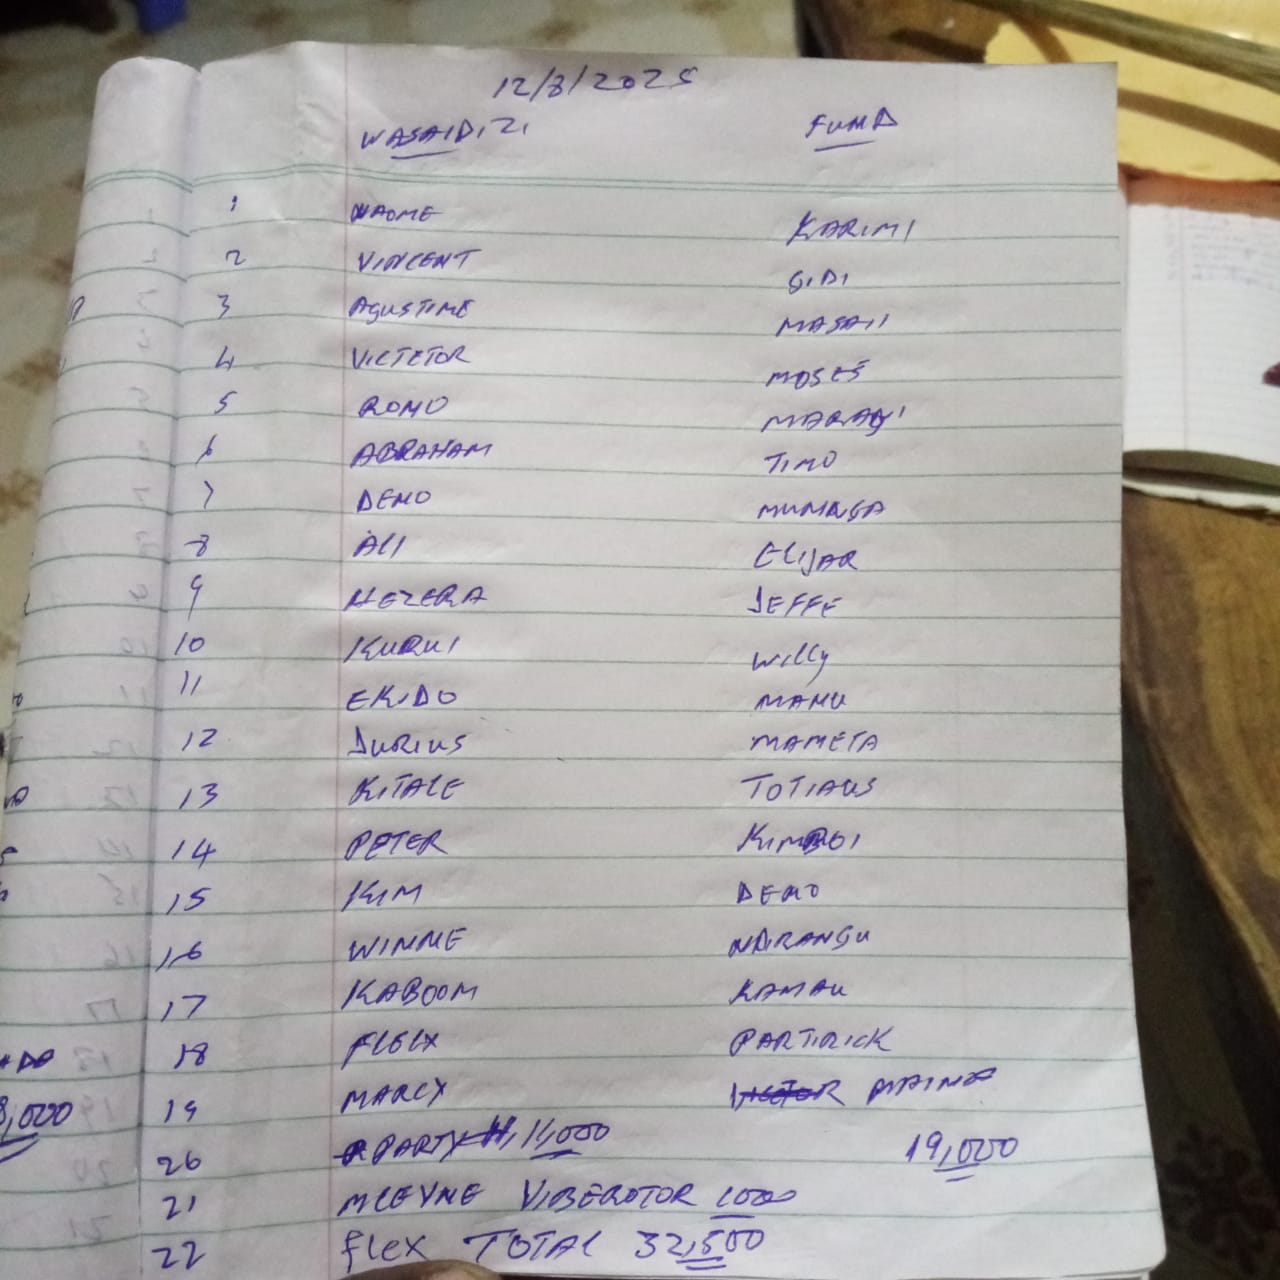 12/8/2025
WASAIDIZI FUNDI
1 NAOME KARIMI
2 VINCENT GIDI
3 AGUSTINE MASAII
4 VICTETOR MOSES
5 RONO
6 ABRAHAM TIMO
7 DENO
8 ALI ELIJAR
9 HEZERA JEFFE
10 KURUI Willy
11 EKIDO MANU
12 JURIUS MAMETA
13 KITALE TOTIAUS
14 PETER KIMBOI
15 KIM DENO
16 WINNE NDIRANGU
17 KABOOM KAMAU
18 FLELX PARTIRICK
19 MARCY VICTOR MAINA
20 PARTY 11,000 19,000
21 VIBEROTOR 1000
22 FLEX TOTAL 32,500